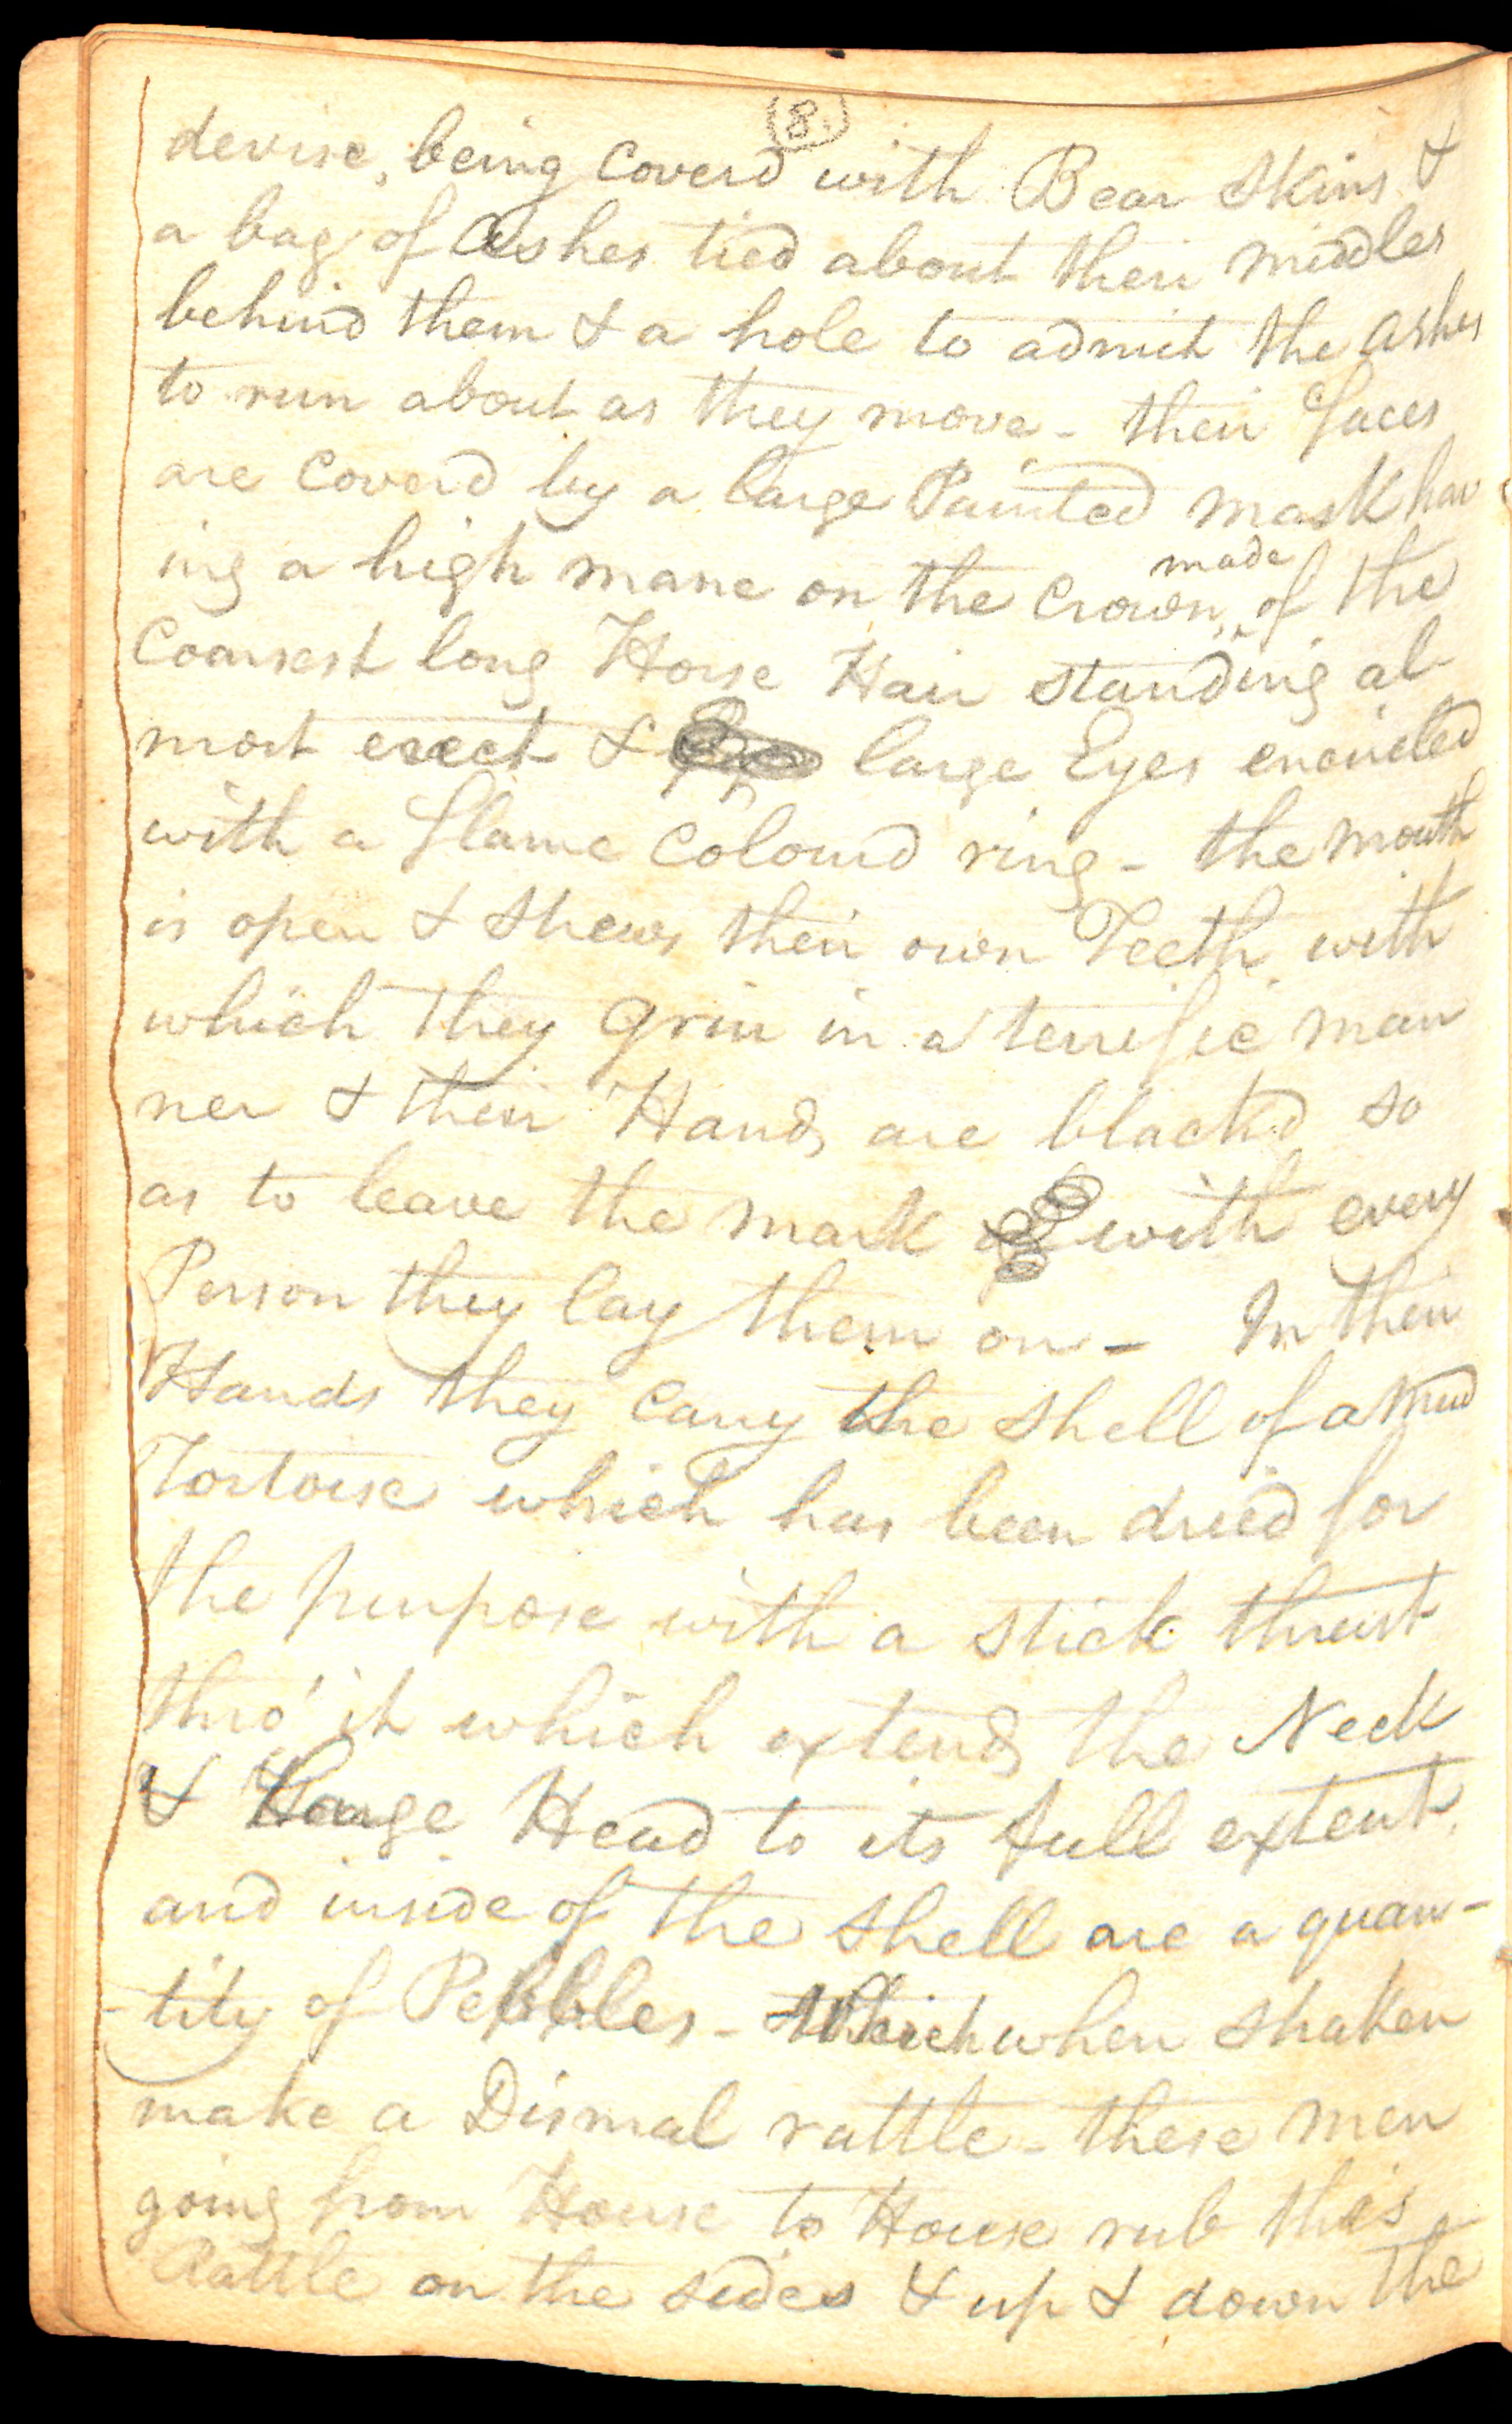 (8.)
devise, being Coverd with Bear Skins &
a bag of Ashes tied about their middles
behind them & a hole to admit the ashes
to run about as they move - their faces
are Coverd by a large Painted mask hav
ing a high mane on the Crown made of the
Coarsest long Horse Hair standing al-
most erect & large Eyes encircled
with a flame Colourd ring - the mouth
is open & shews their own Teeth with
which they grin in a terrific man
ner & their Hands are blacked so
as to leave the mark with every
Person they lay them on - In their
Hands they Carry the shell of a Mud
Tortoise which has been dried for
the purpose with a stick thrust
thro' it which extends the Neck
& Large Head to its full extent
and inside of the shell are a quan-
tity of Pebbles - Which when shaken
make a Dismal rattle - these men
going from House to House rub this
Rattle on the sides & up & down the